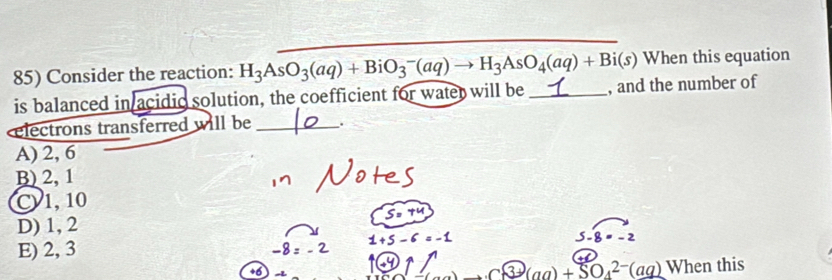 85) Consider the reaction: H₃AsO₃(aq) + BiO₃⁻(aq) → H₃AsO₄(aq) + Bi(s) When this equation
is balanced in acidic solution, the coefficient for water will be 1, and the number of
electrons transferred will be 10.
A) 2, 6
B) 2, 1
C) 1, 10
D) 1, 2
E) 2, 3
in Notes
S = +4
-8 = -2
1+5-6 = -1
5-8 = -2
+6
+4
(aq) + SO₄²⁻(aq) When this